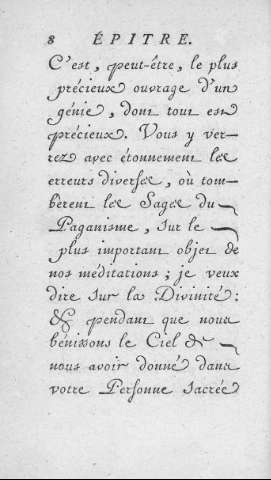 8 ÉPITRE.
C'est, peut-être, le plus
précieux ouvrage d'un
génie, dont tout est
précieux. Vous y ver-
rez avec étonnement les
erreurs diverses, où tom-
bèrent les Sages du
Paganisme, sur le
plus important objet de
nos méditations ; je veux
dire sur la Divinité :
& pendant que nous
bénissons le Ciel de
nous avoir donné dans
votre Personne sacrée